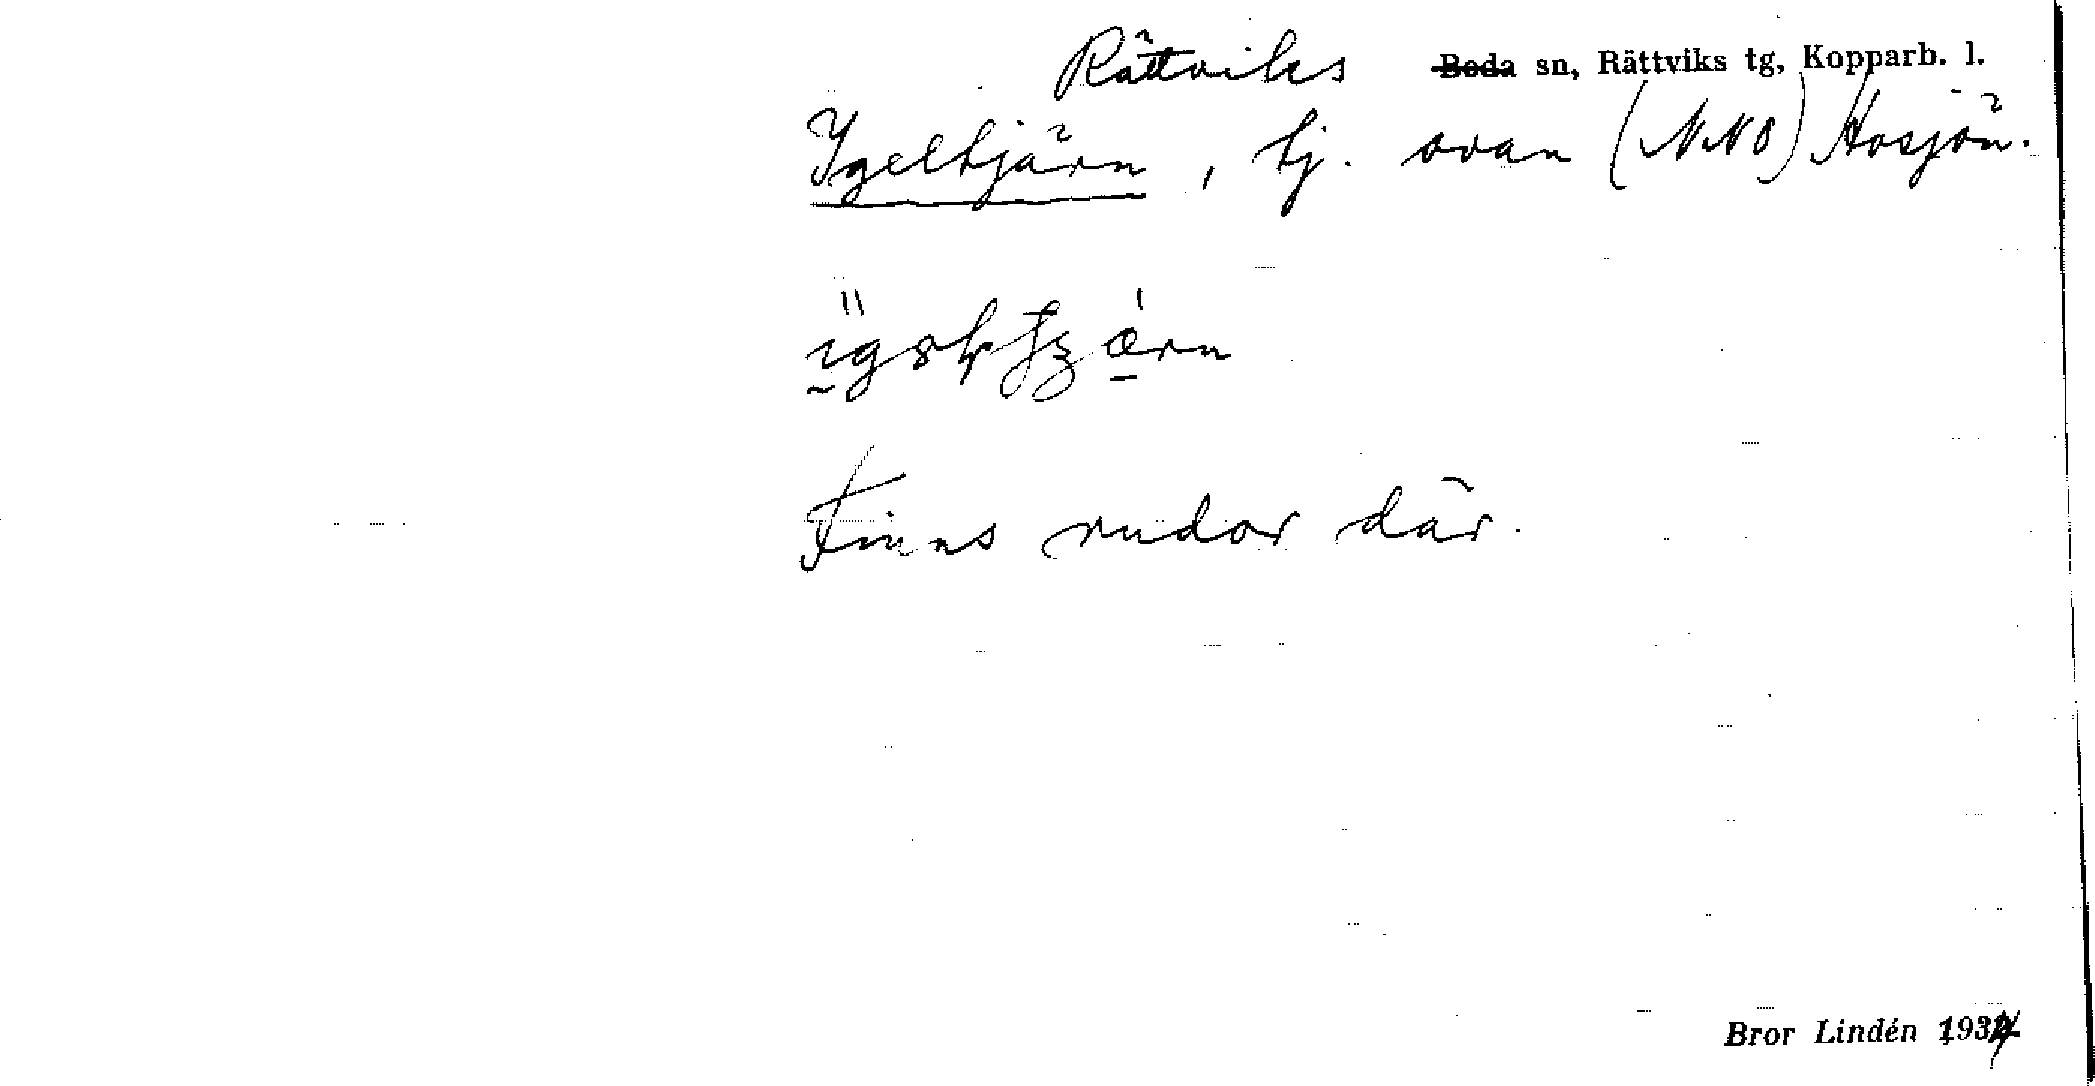 Rättviks Boda sn, Rättviks tg, Kopparb. l.
Igeltjärn, tj. ovan (NNO) Hosjön.
Finns rudor där.
Bror Lindén 1934